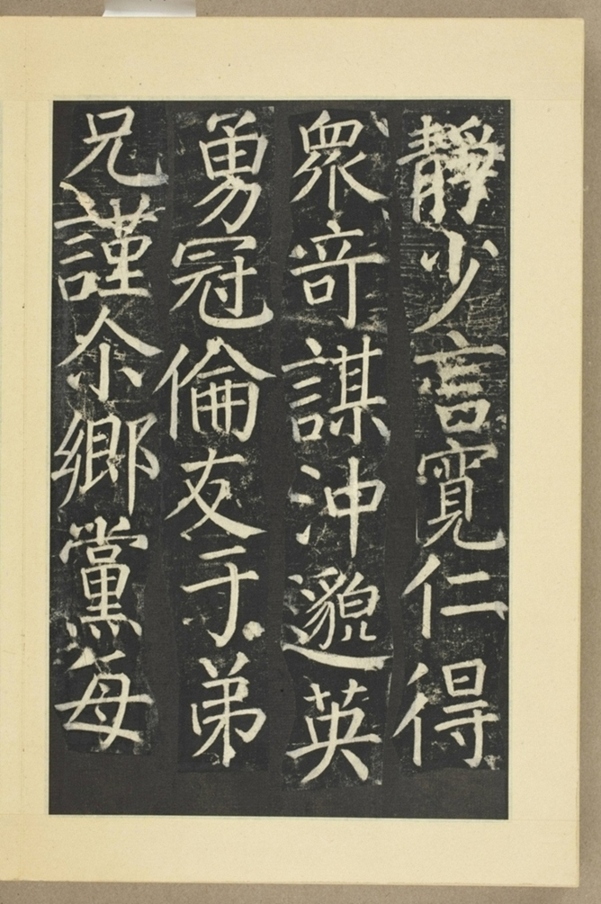 靜少言寬仁得
衆竒謀沖邈英
勇冠倫友于弟
兄謹尒鄉黨每